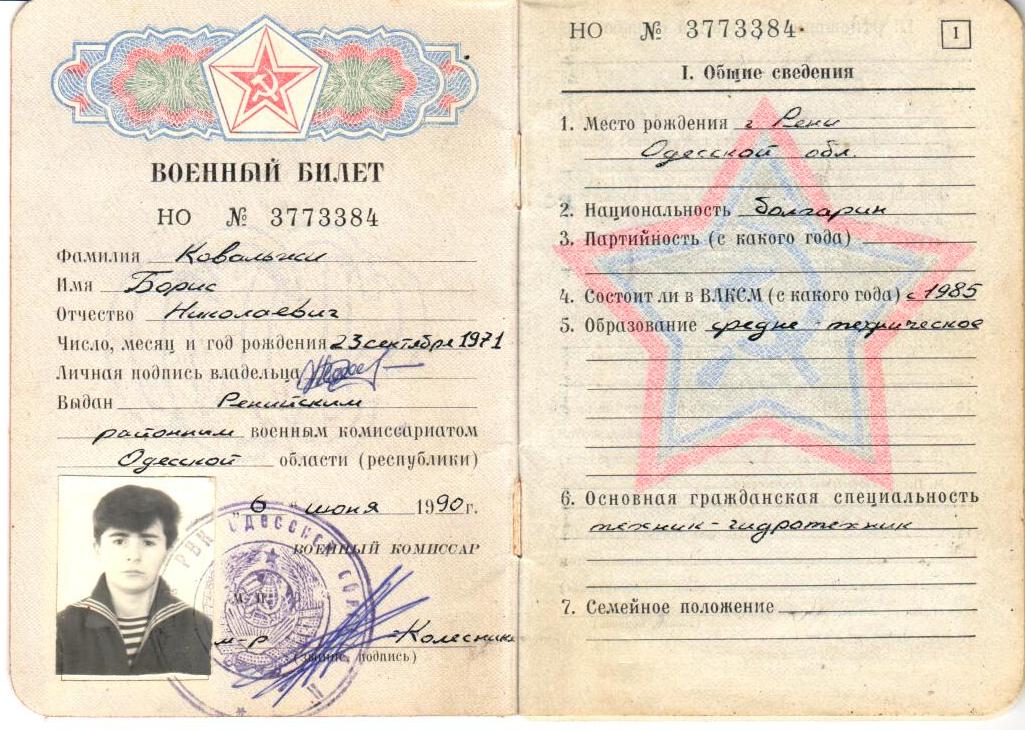 ВОЕННЫЙ БИЛЕТ
НО № 3773384
Фамилия Ковальжи
Имя Борис
Отчество Николаевич
Число, месяц и год рождения 23 сентября 1971
Личная подпись владельца
Выдан Ренийским
районным военным комиссариатом
Одесской области (республики)
6 июня 1990 г.
ВОЕННЫЙ КОМИССАР
М. П.
м-р Колесник
(звание, подпись)
РВК ОДЕССКОЙ
НО № 3773384
1
I. Общие сведения
1. Место рождения г. Рени
Одесской обл.
2. Национальность болгарин
3. Партийность (с какого года)
4. Состоит ли в ВЛКСМ (с какого года) с 1985
5. Образование средне-техническое
6. Основная гражданская специальность
техник-гидротехник
7. Семейное положение